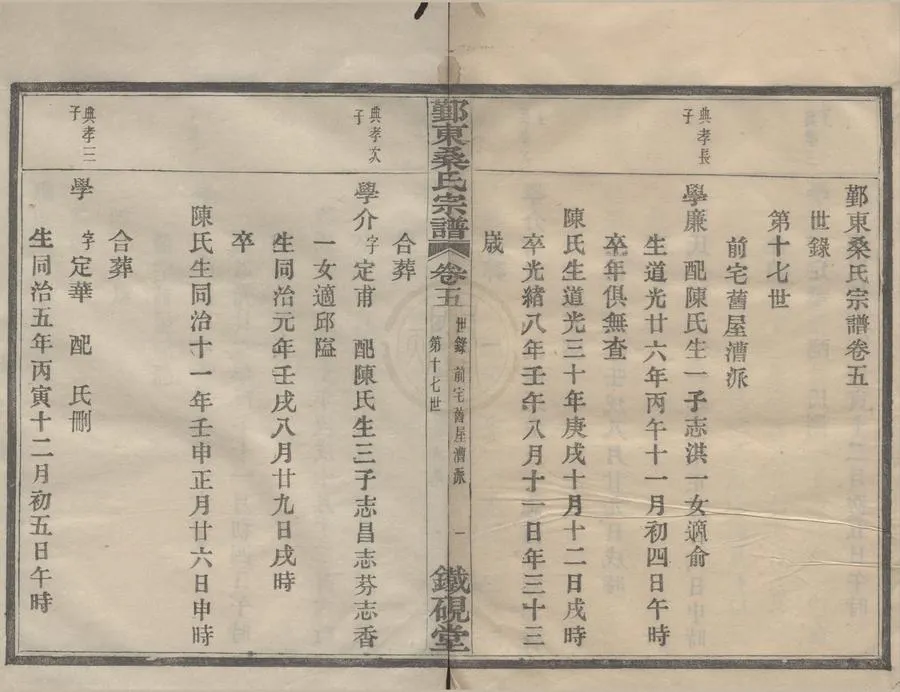 鄞東桑氏宗譜卷五
世錄
第十七世
前宅舊屋漕派
典孝長子
學廉 配陳氏生一子志淇一女適俞
生道光廿六年丙午十一月初四日午時
卒年俱無查
陳氏生道光三十年庚戌十月十二日戌時
卒光緒八年壬午八月十一日年三十三
歲
鄞東桑氏宗譜 卷五 世錄 前宅舊屋漕派 第十七世 一 鐵硯堂
合葬
典孝次子
學介字定甫 配陳氏生三子志昌志芬志香
一女適邱隘
生同治元年壬戌八月廿九日戌時
卒
陳氏生同治十一年壬申正月廿六日申時
合葬
典孝三子
學 字定華 配 氏刪
生同治五年丙寅十二月初五日午時